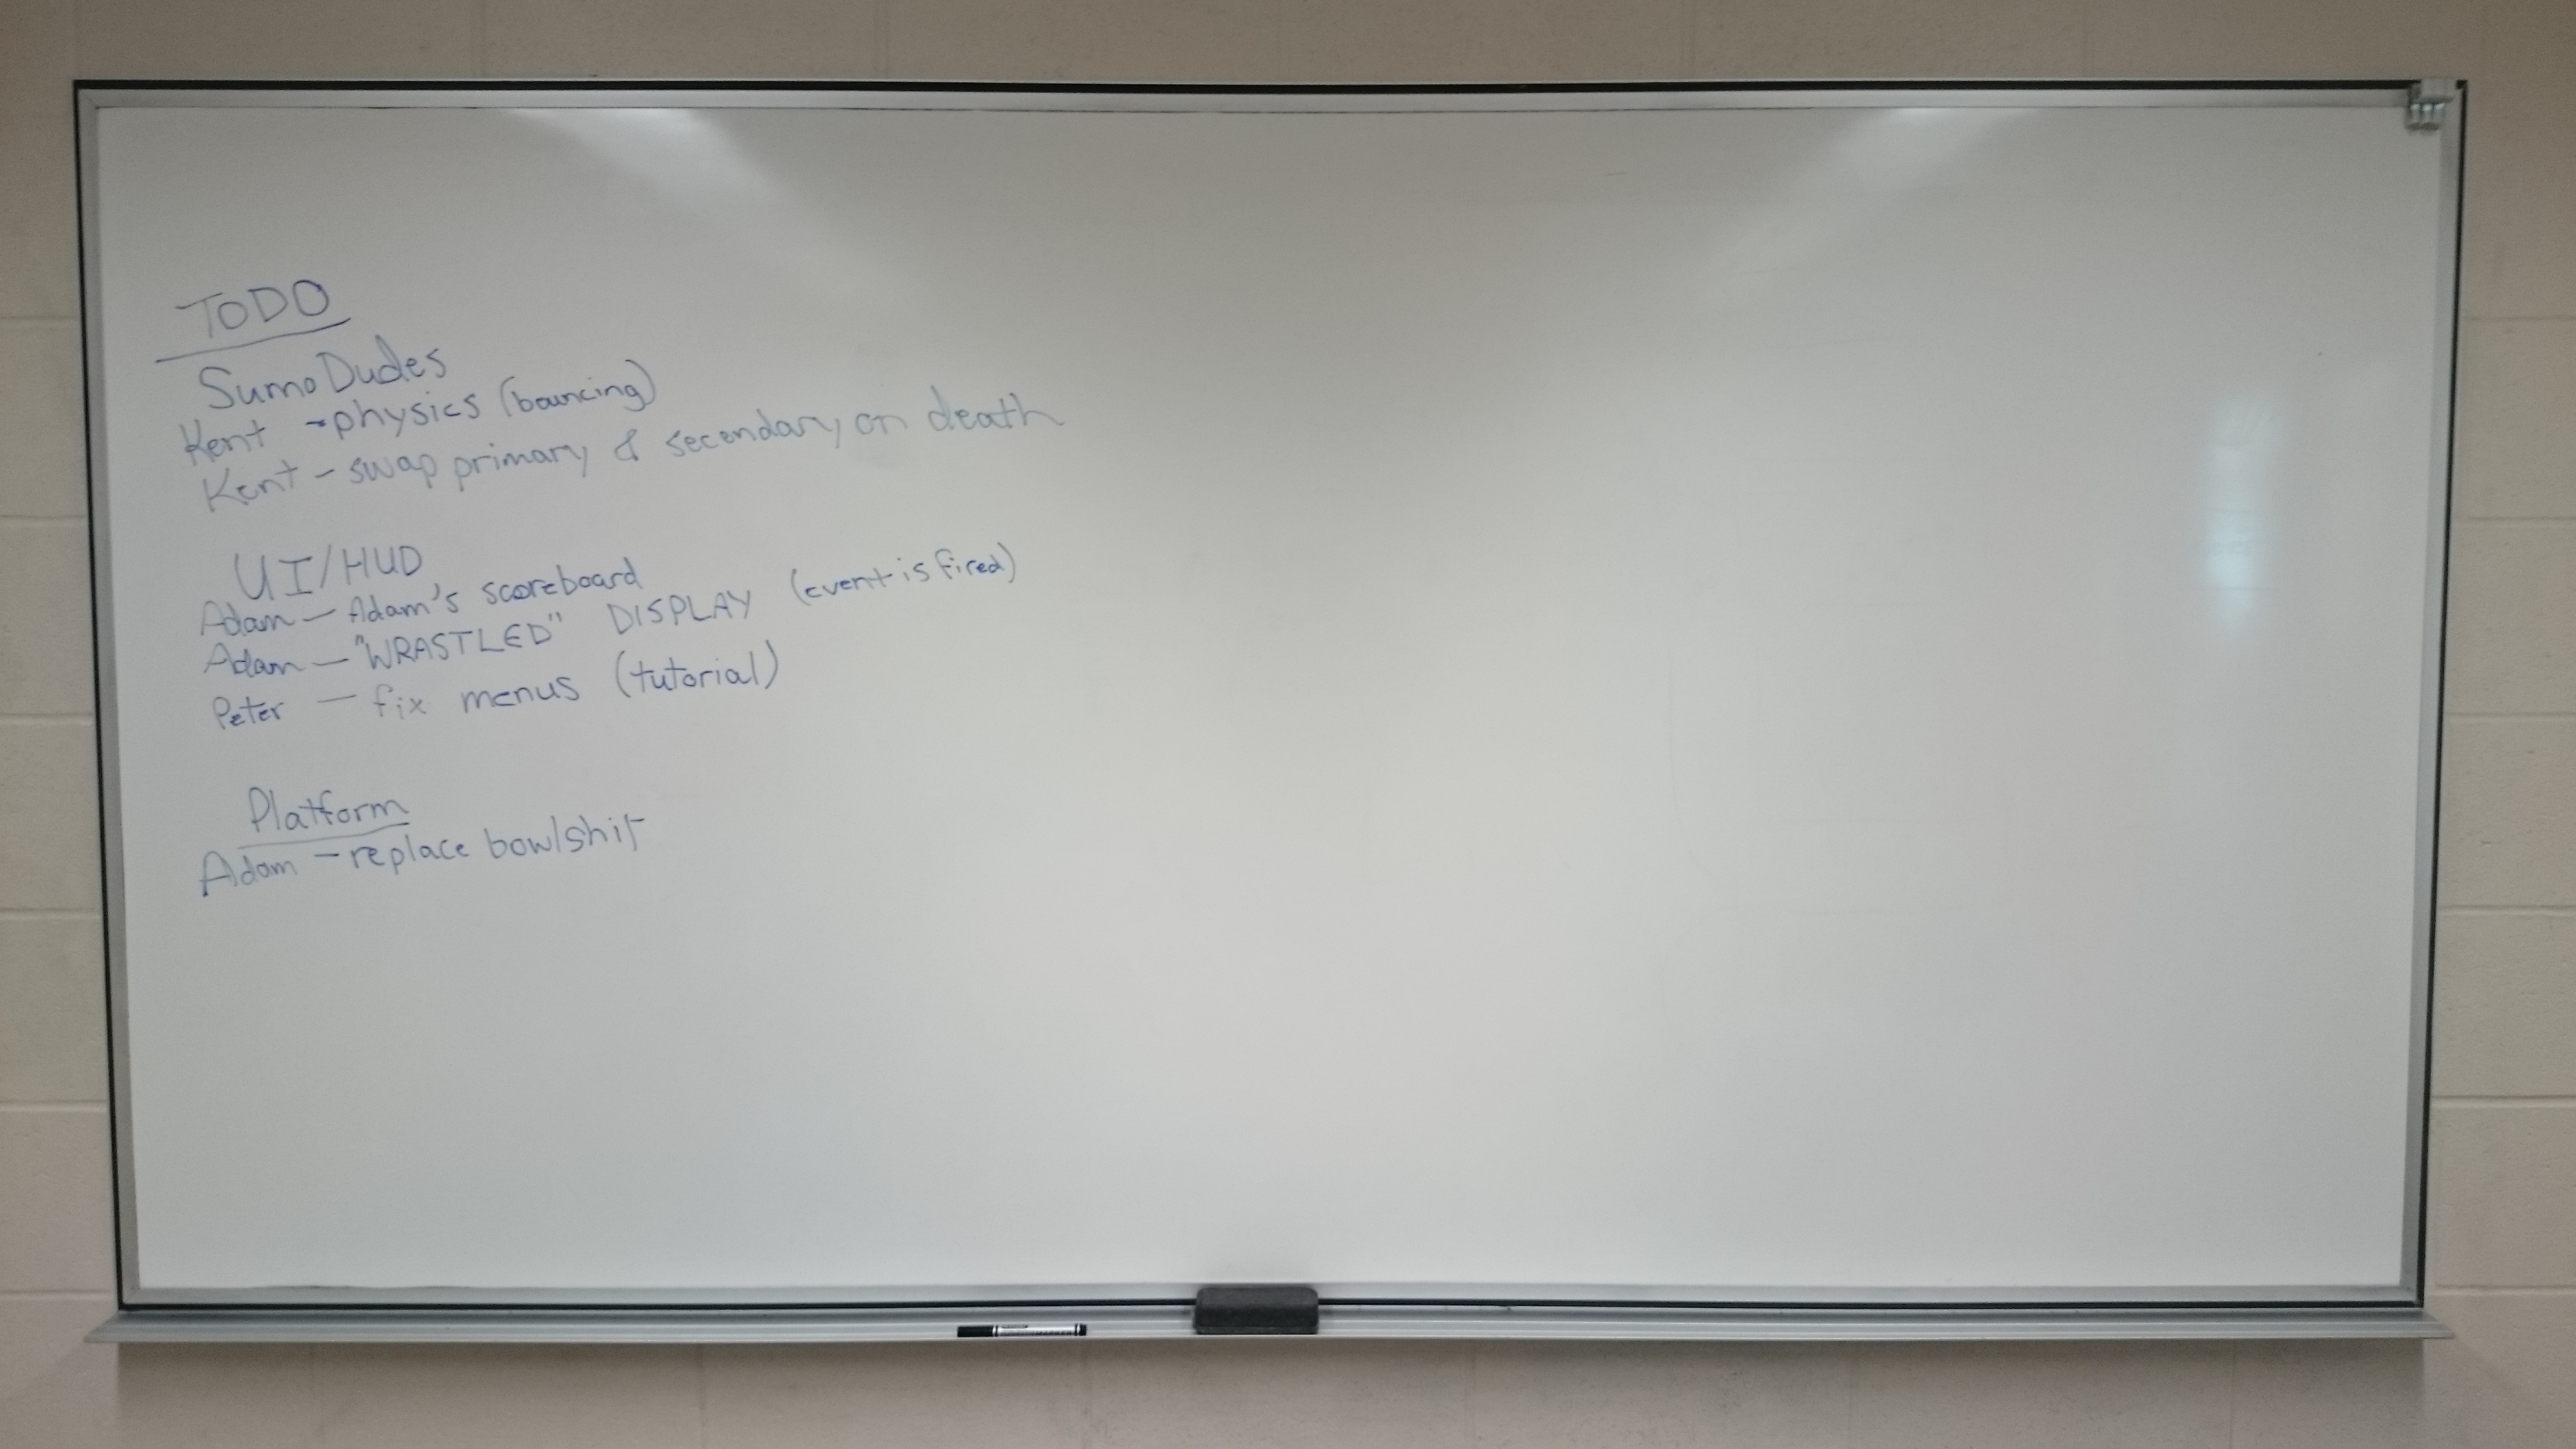 TODO
SumoDudes
Kent - physics (bouncing)
Kent - swap primary & secendary on death
UI/HUD
Adam - Adam's scoreboard
Adam - "WRASTLED" DISPLAY (event is fired)
Peter - fix menus (tutorial)
Platform
Adam - replace bowlshit